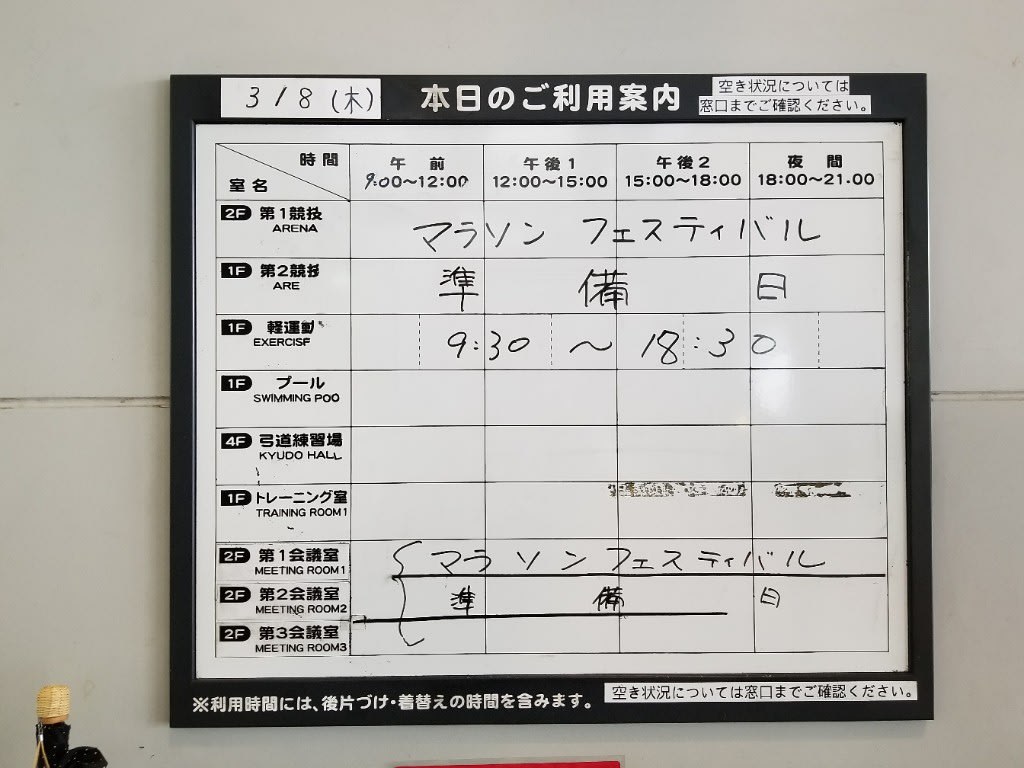 3/8(木)
本日のご利用案内
空き状況については
窓口までご確認ください。
時間
室名
午前
9:00〜12:00
午後1
12:00〜15:00
午後2
15:00〜18:00
夜間
18:00〜21.00
2F 第1競技
ARENA
マラソン フェスティバル
1F 第2競技
ARE
準 備 日
1F 軽運動
EXERCISE
9:30 〜 18:30
1F プール
SWIMMING POO
4F 弓道練習場
KYUDO HALL
1F トレーニング室
TRAINING ROOM1
2F 第1会議室
MEETING ROOM1
マラソンフェスティバル
2F 第2会議室
MEETING ROOM2
準 備 日
2F 第3会議室
MEETING ROOM3
※利用時間には、後片づけ・着替えの時間を含みます。
空き状況については窓口までご確認ください。